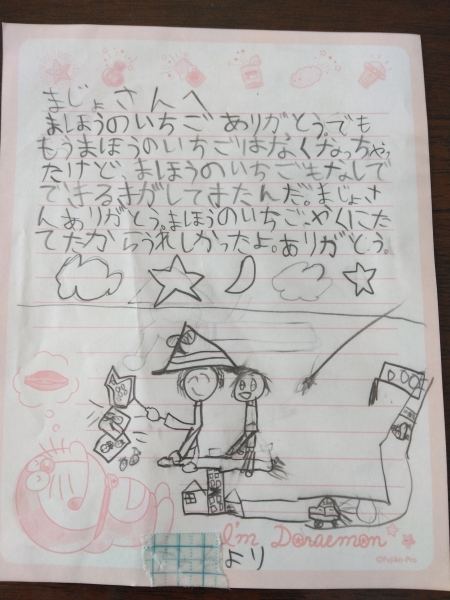 まじょさんへ
まほうのいちごありがとう。でも
もうまほうのいちごはなくなっちゃっ
たけど、まほうのいちごもなしで
できるきがしてきたんだ。まじょさ
んありがとう。まほうのいちご、やくにた
てたからうれしかったよ。ありがとう。
I'm Doraemon
©Fujiko-Pro
より